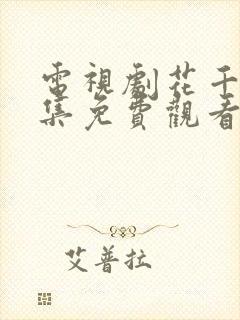 電視劇花千
集免費觀看
艾普拉